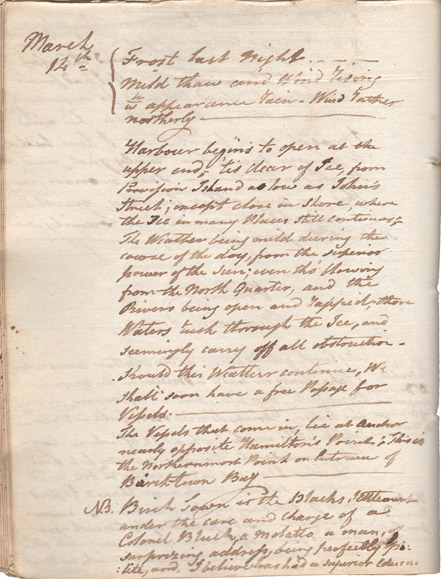 March
14th
Frost last Night. - - -
Mild thaw and Wind rising
wth appearance rain - Wind rather
northerly
Harbour begins to open at the
upper end, tis clear of Ice, from
Provision Island as low as John's
Street; except close in shore, where
the Ice in many Places still continues;
The Weather being mild during the
course of the day, from the superior
power of the Sun; even tho' blowing
from the North Quarter, and the
Rivers being open and rapped, those
Waters rush through the Ice, and
seemingly carry off all obstruction -
Should this Weather continue, We
shall soon have a free Passage for
Vessels.
The Vessels that come in, lie at Anchor
nearly opposite Hamilton's Point; This is
the Northernmost Point on Entrance of
Birchtown Bay
NB. Birch Town is the Blacks settlement
under the care and charge of a
Colonel Bluck, a Molatto, a man of
surprizing address, being perfectly po-
:lite, and, I believe has had a superior Educa: